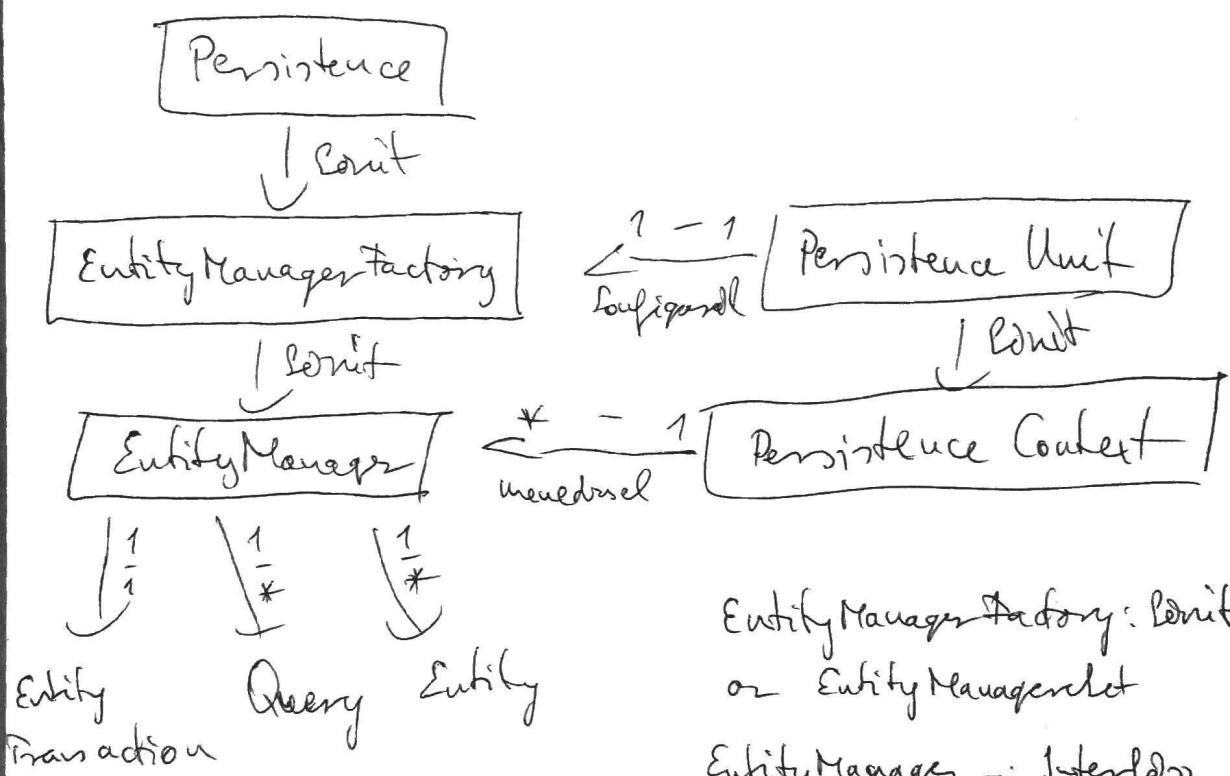 Persistence
készít
EntityManagerFactory
1 - 1
Persistence Unit
konfigurál
készít
készít
EntityManager
* - 1
Persistence Context
menedzsel
1 - 1
1 - *
1 - *
Entity
Transaction
Query
Entity
EntityManagerFactory: készít
az EntityManagereket
EntityManager